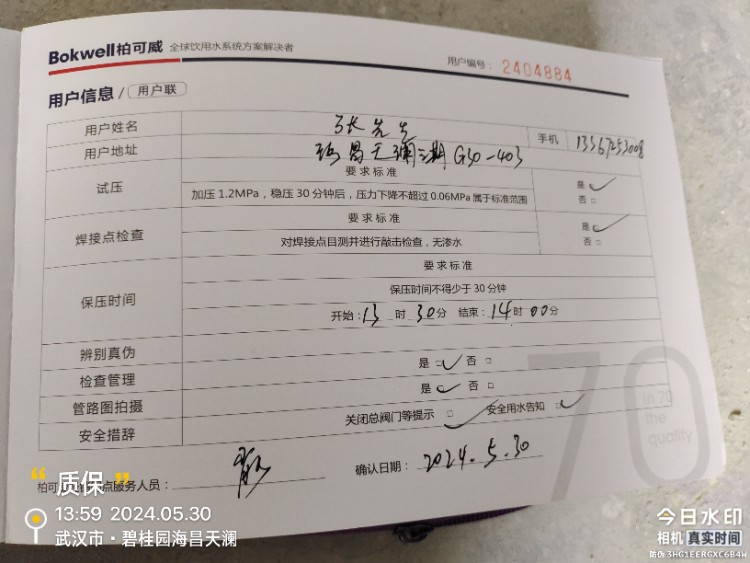 Bokwell柏可威 全球饮用水系统方案解决者
用户编号: 2404884
用户信息 / 用户联
用户姓名 张先生
手机 13367253008
用户地址 海昌天澜三期 G30-403
试压 要求标准
加压1.2MPa，稳压30分钟后，压力下降不超过0.06MPa属于标准范围
是
否
焊接点检查 要求标准
对焊接点目测并进行敲击检查，无渗水
是
否
保压时间 要求标准
保压时间不得少于30分钟
开始: 13 时 30 分 结束: 14 时 00 分
辨别真伪
检查管理 是 否
管路图拍摄 是 否
安全措辞 关闭总阀门等提示 安全用水告知
70
In 70
the
quality
点服务人员: 确认日期: 2024.5.30
“质保”
13:59 2024.05.30
武汉市·碧桂园海昌天澜
今日水印
相机 真实时间
防伪 3HG1EERGXC6B4W